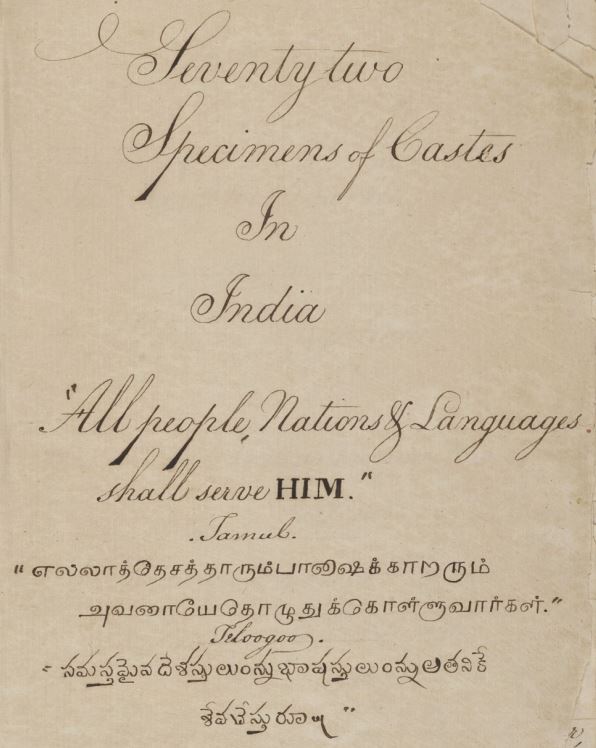 Seventy two
Specimens of Castes
In
India
"All people, Nations & Languages
shall serve HIM."
Tamul.
"எல்லாத்தேசத்தாரும்பாஷைக்காறரும்
அவனாயேதொழுதுக்கொள்ளுவார்கள்."
Teloogoo.
సమస్తమైవ దేశస్తులుంన్ను భాషస్తులుంన్ను అతనికే